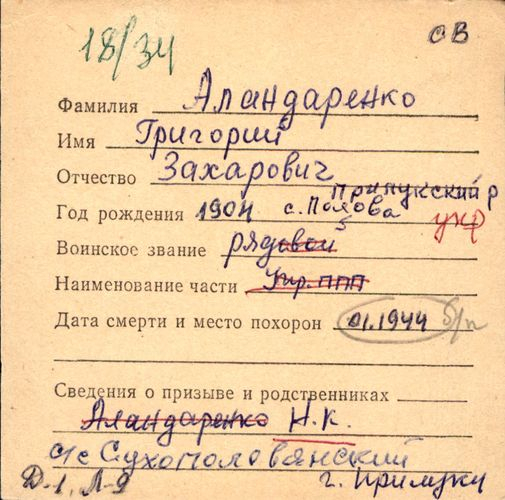 18/34 СВ
Фамилия Аландаренко
Имя Григорий
Отчество Захарович
Прилукский р
Год рождения 1904 с. Полова укр
Воинское звание рядовой
Наименование части Упр. ППП
Дата смерти и место похорон 01.1944 б/п
Сведения о призыве и родственниках
Аландаренко Н.К.
с/с Сухополовянский
Д-1, Л-9 г. Прилуки